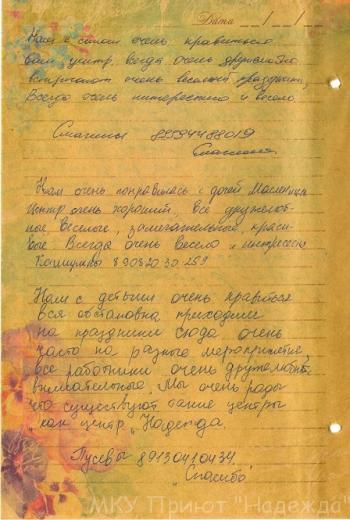 Дата __/__/__
Нам с сыном очень нравиться
ваш центр, всегда очень дружелюбно
встречают очень веселый праздники,
Всегда очень интерестно и весело.
Смагины 89594488019
Нам очень понравилась с дочей Масленица
Центр очень хороший, все дружелюб-
ные, веселые, замечательные, краси-
вые Всегда очень весело и интресесно
8 908 20 30 259
Нам с детьми очень нравиться
вся обстановка приходим
на праздники сюда очень
часто на разные мероприятие,
все работники очень дружелюбные
внимательные. Мы очень рады
что существуют такие центры
как центр „Надежда
Гусевы 89130410434.
„Спасибо"
МКУ Приют "Надежда"